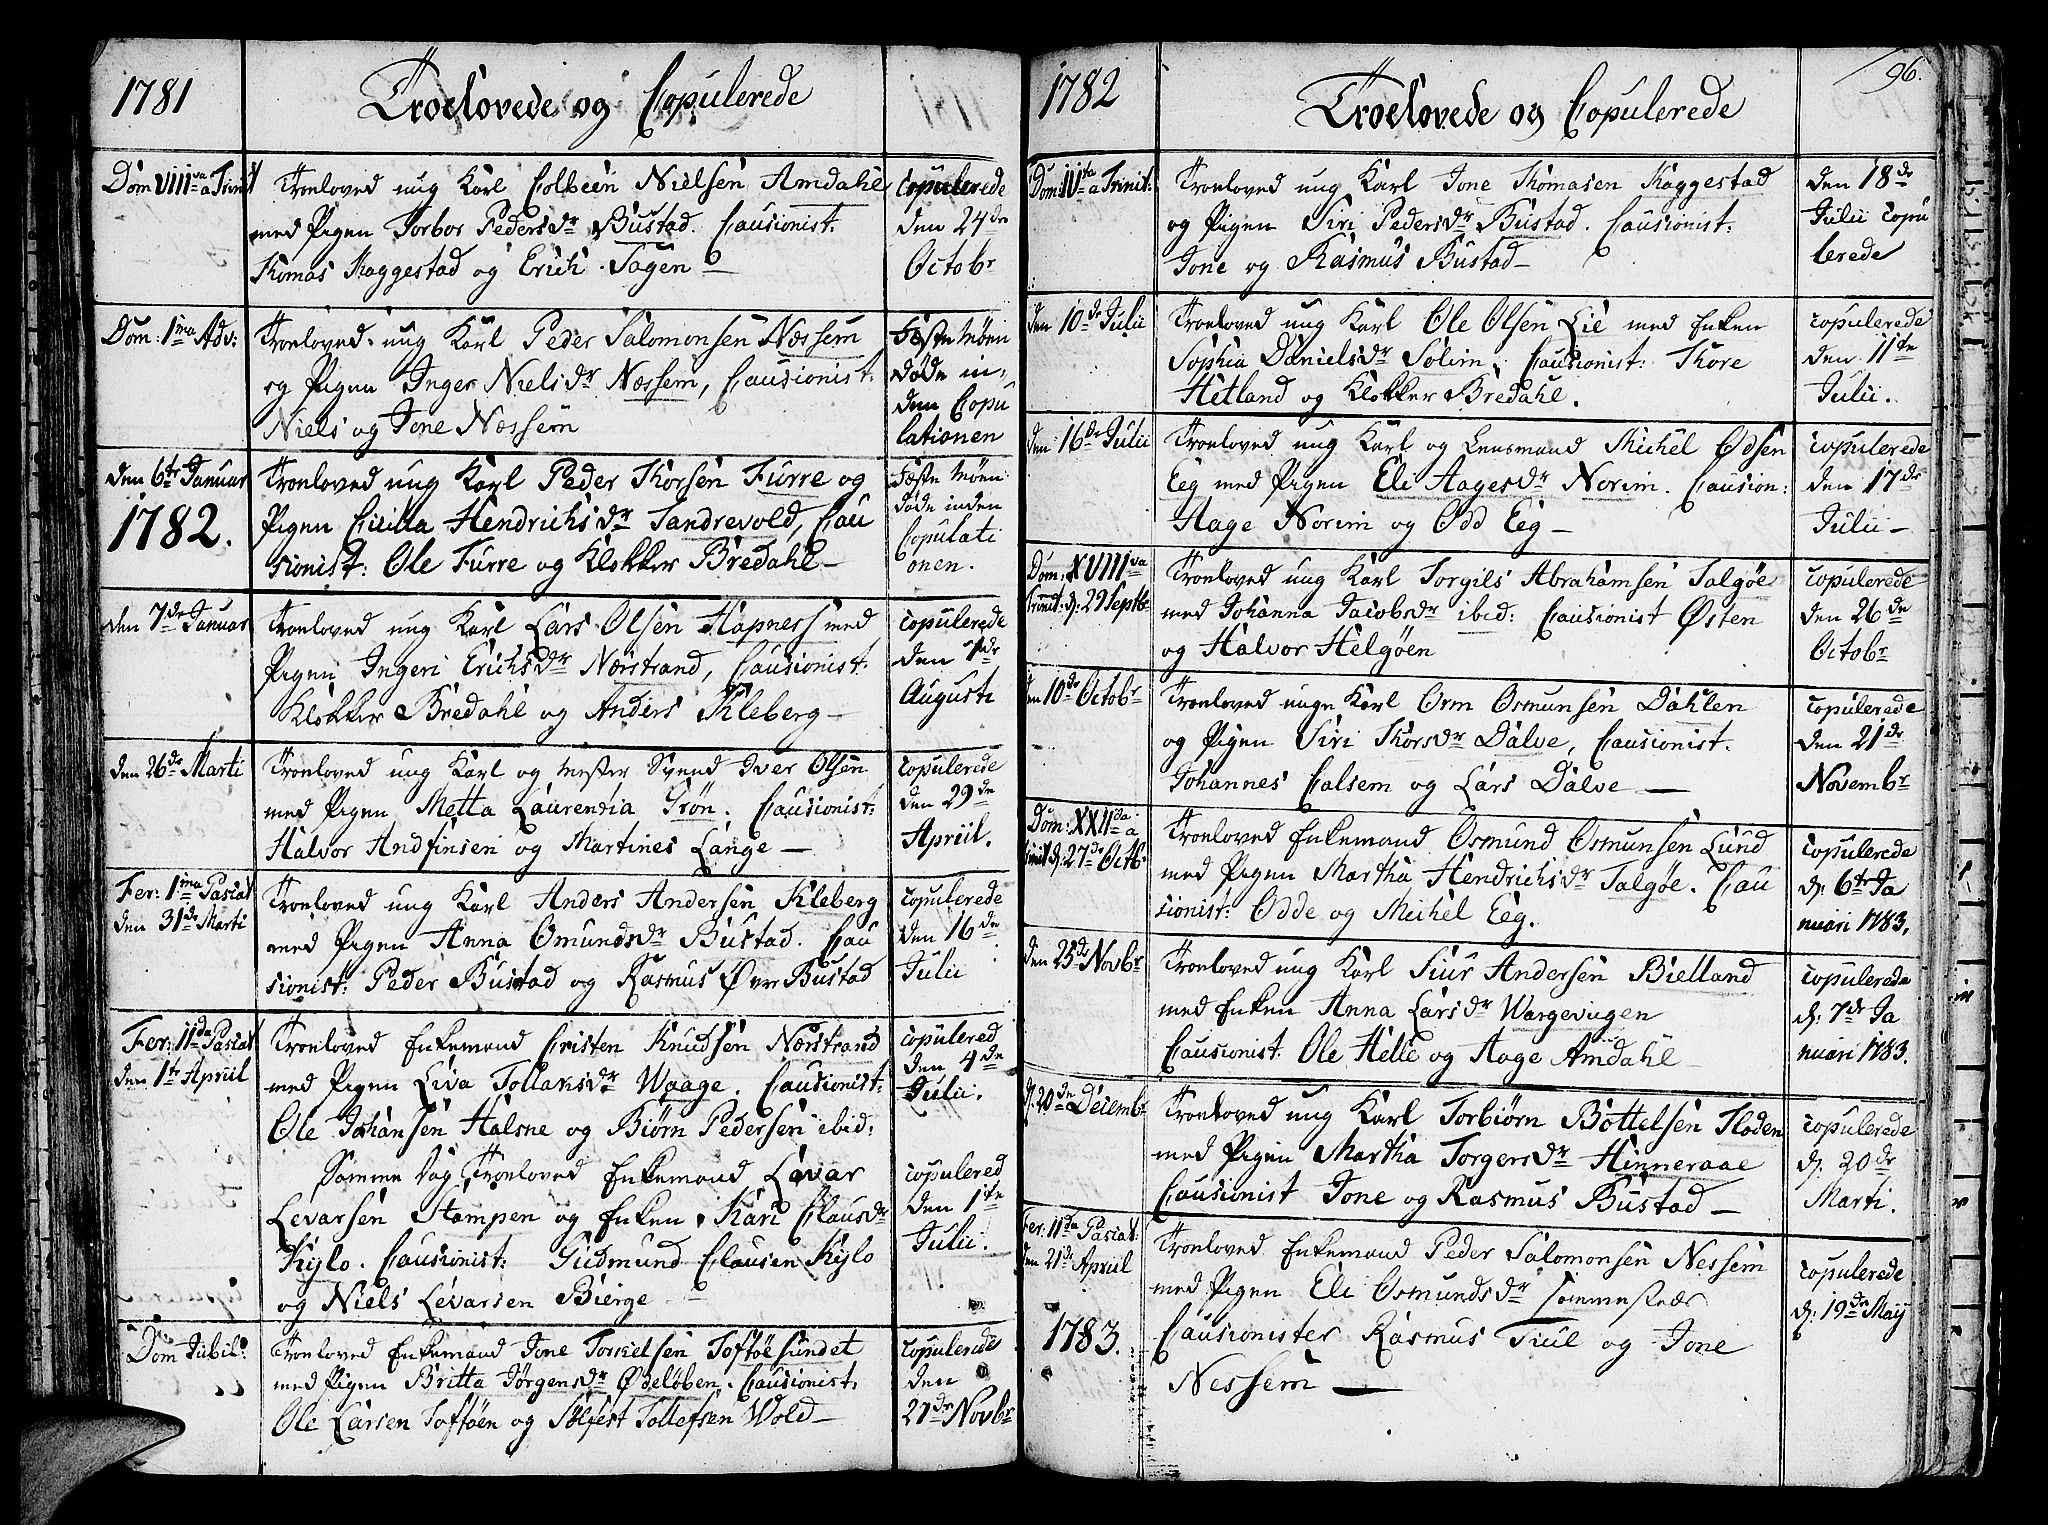 1781
Troelovede og Copulerede
Dom VIIIva a Trinit
Troeloved ung Karl Colbeen Nielsen Amdahl
med Pigen Torbor Pedersdr Bustad. Causionist.
Thomas Raggestad og Erich Tagen
copulerede
den 24de
Octobr
Dom: 1ma Adv:
Troeloved ung Karl Peder Salomonsen Næssem
og Pigen Inger Nielsdr Næssem, Causionist:
Niels og Jone Næssem
Fæste Møen
døde in,
den Copu
lationen
den 6te Januar
1782.
Troeloved ung Karl Peder Thorsen Furre og
Pigen Cicilla Hendrichsdr Sandrevold, Cau
sionist: Ole Furre og Klokker Bredahl
Fæste Møen
døde inden
Copulati
onen.
den 7de Januar
Troeloved ung Karl Lars Olsen Hapness med
Pigen Ingeri Erichsdr Nærstrand, Causionist:
Klokker Bredahl og Anders Kleberg
copulerede
den 1de
Augusti
den 26de Marti
Troeloved ung Karl og Mester Svend Iver Olsen
med Pigen Metta Laurentia Trøn. Causionist:
Halvor Andfinsen og Martines Lange
copulerede
den 29de
Apriil.
Fer: 1ma Pascat
den 31de Marti
Troeloved ung Karl Anders Andersen Kleberg
med Pigen Anna Omundsdr Bustad. Cau
sionist: Peder Bustad og Rasmus Øvre Bustad
copulerede
den 16de
Julii
Fer: IIda Pascat
den 1te Apriil
Troeloved Enkemand Cristen Knudsen Nærstrand
med Pigen Liva Tollaksdr Waage. Causionist:
Ole Johansen Halsne og Biørn Pedersen ibid:
copulered
den 4de
Julii.
Samme Dag Troeloved Enkemand Levar
Levarsen Stampen og Enken Kari Clausdr
Kylo. Causionist: Gudmund Clausen Kylo
og Niels Levarsen Bierge
copulered
den 1te
Julii.
Dom Jubil:
Troeloved Enkemand Jone Torkielsen Toftøesundet
med Pigen Britta Jørgensdr Ødeløben. Causionist.
Ole Larsen Toftøen og Sølfest Tollefsen Wold
copulerede
den
27de Novbr
1782
Troelovede og Copulerede
96.
Dom: IVta a Trinit:
Troeloved ung Karl Jone Thomasen Raggestad
og Pigen Siri Pedersdr Bustad. Causionist:
Jone og Rasmus Bustad
den 18de
Julii copu
lerede
den 10de Julii
Troeloved ung Karl Ole Olsen Lie med Enken
Sophia Danielsdr Solim. Causionist: Thore
Hetland og Klokker Bredahl.
copulerede
den 11te
Julii.
den 16de Julii
Troeloved ung Karl og Lensmand Michel Odsen
Eeg med Pigen Eli Aagesdr Norim. Causion:
Aage Norim og Odd Eeg
copulerede
den 17de
Julii
Dom: XVIIIva
Trinit: d: 29 Septb
Troeloved ung Karl Torgils Abrahamsen Talgøe
med Johanna Jacobsdr ibid: Causionist Østen
og Halvor Helgøen
copulerede
den 26de
Octobr
den 10de Octobr
Troeloved unge Karl Orm Osmunsen Dahlen
og Pigen Siri Thorsdr Dalve, Causionist.
Johannes Calsem og Lars Dalve
copulerede
den 21de
Novembr
Dom: XXIIda a
Trinit d: 27de Octb
Troeloved Enkemand Osmund Osmunsen Lund
med Pigen Martha Hendrichsdr Talgøe. Cau
sionist: Odde og Michel Eeg.
copulerede
d: 6te Ja
nuari 1783.
den 25de Novbr
Troeloved ung Karl Siur Andersen Bielland
med Enken Anna Larsdr Wargevugen
Causionist: Ole Helle og Aage Amdahl
copulerede
d: 7de Ja
nuari 1783.
d: 20de Decemb
Troeloved ung Karl Torbiørn Bottelsen Floden
med Pigen Martha Torgersdr Hinneraae
Causionist Jone og Rasmus Bustad
copulerede
d: 20de
Marti.
Fer: IIda Pascat.
den 21de Apriil
1783.
Troeloved Enkemand Peder Salomonsen Nessem
med Pigen Eli Osmundsdr sammestæds
Causionister Rasmus Tuul og Jone
Nessem
copulerede
d: 19de Maij